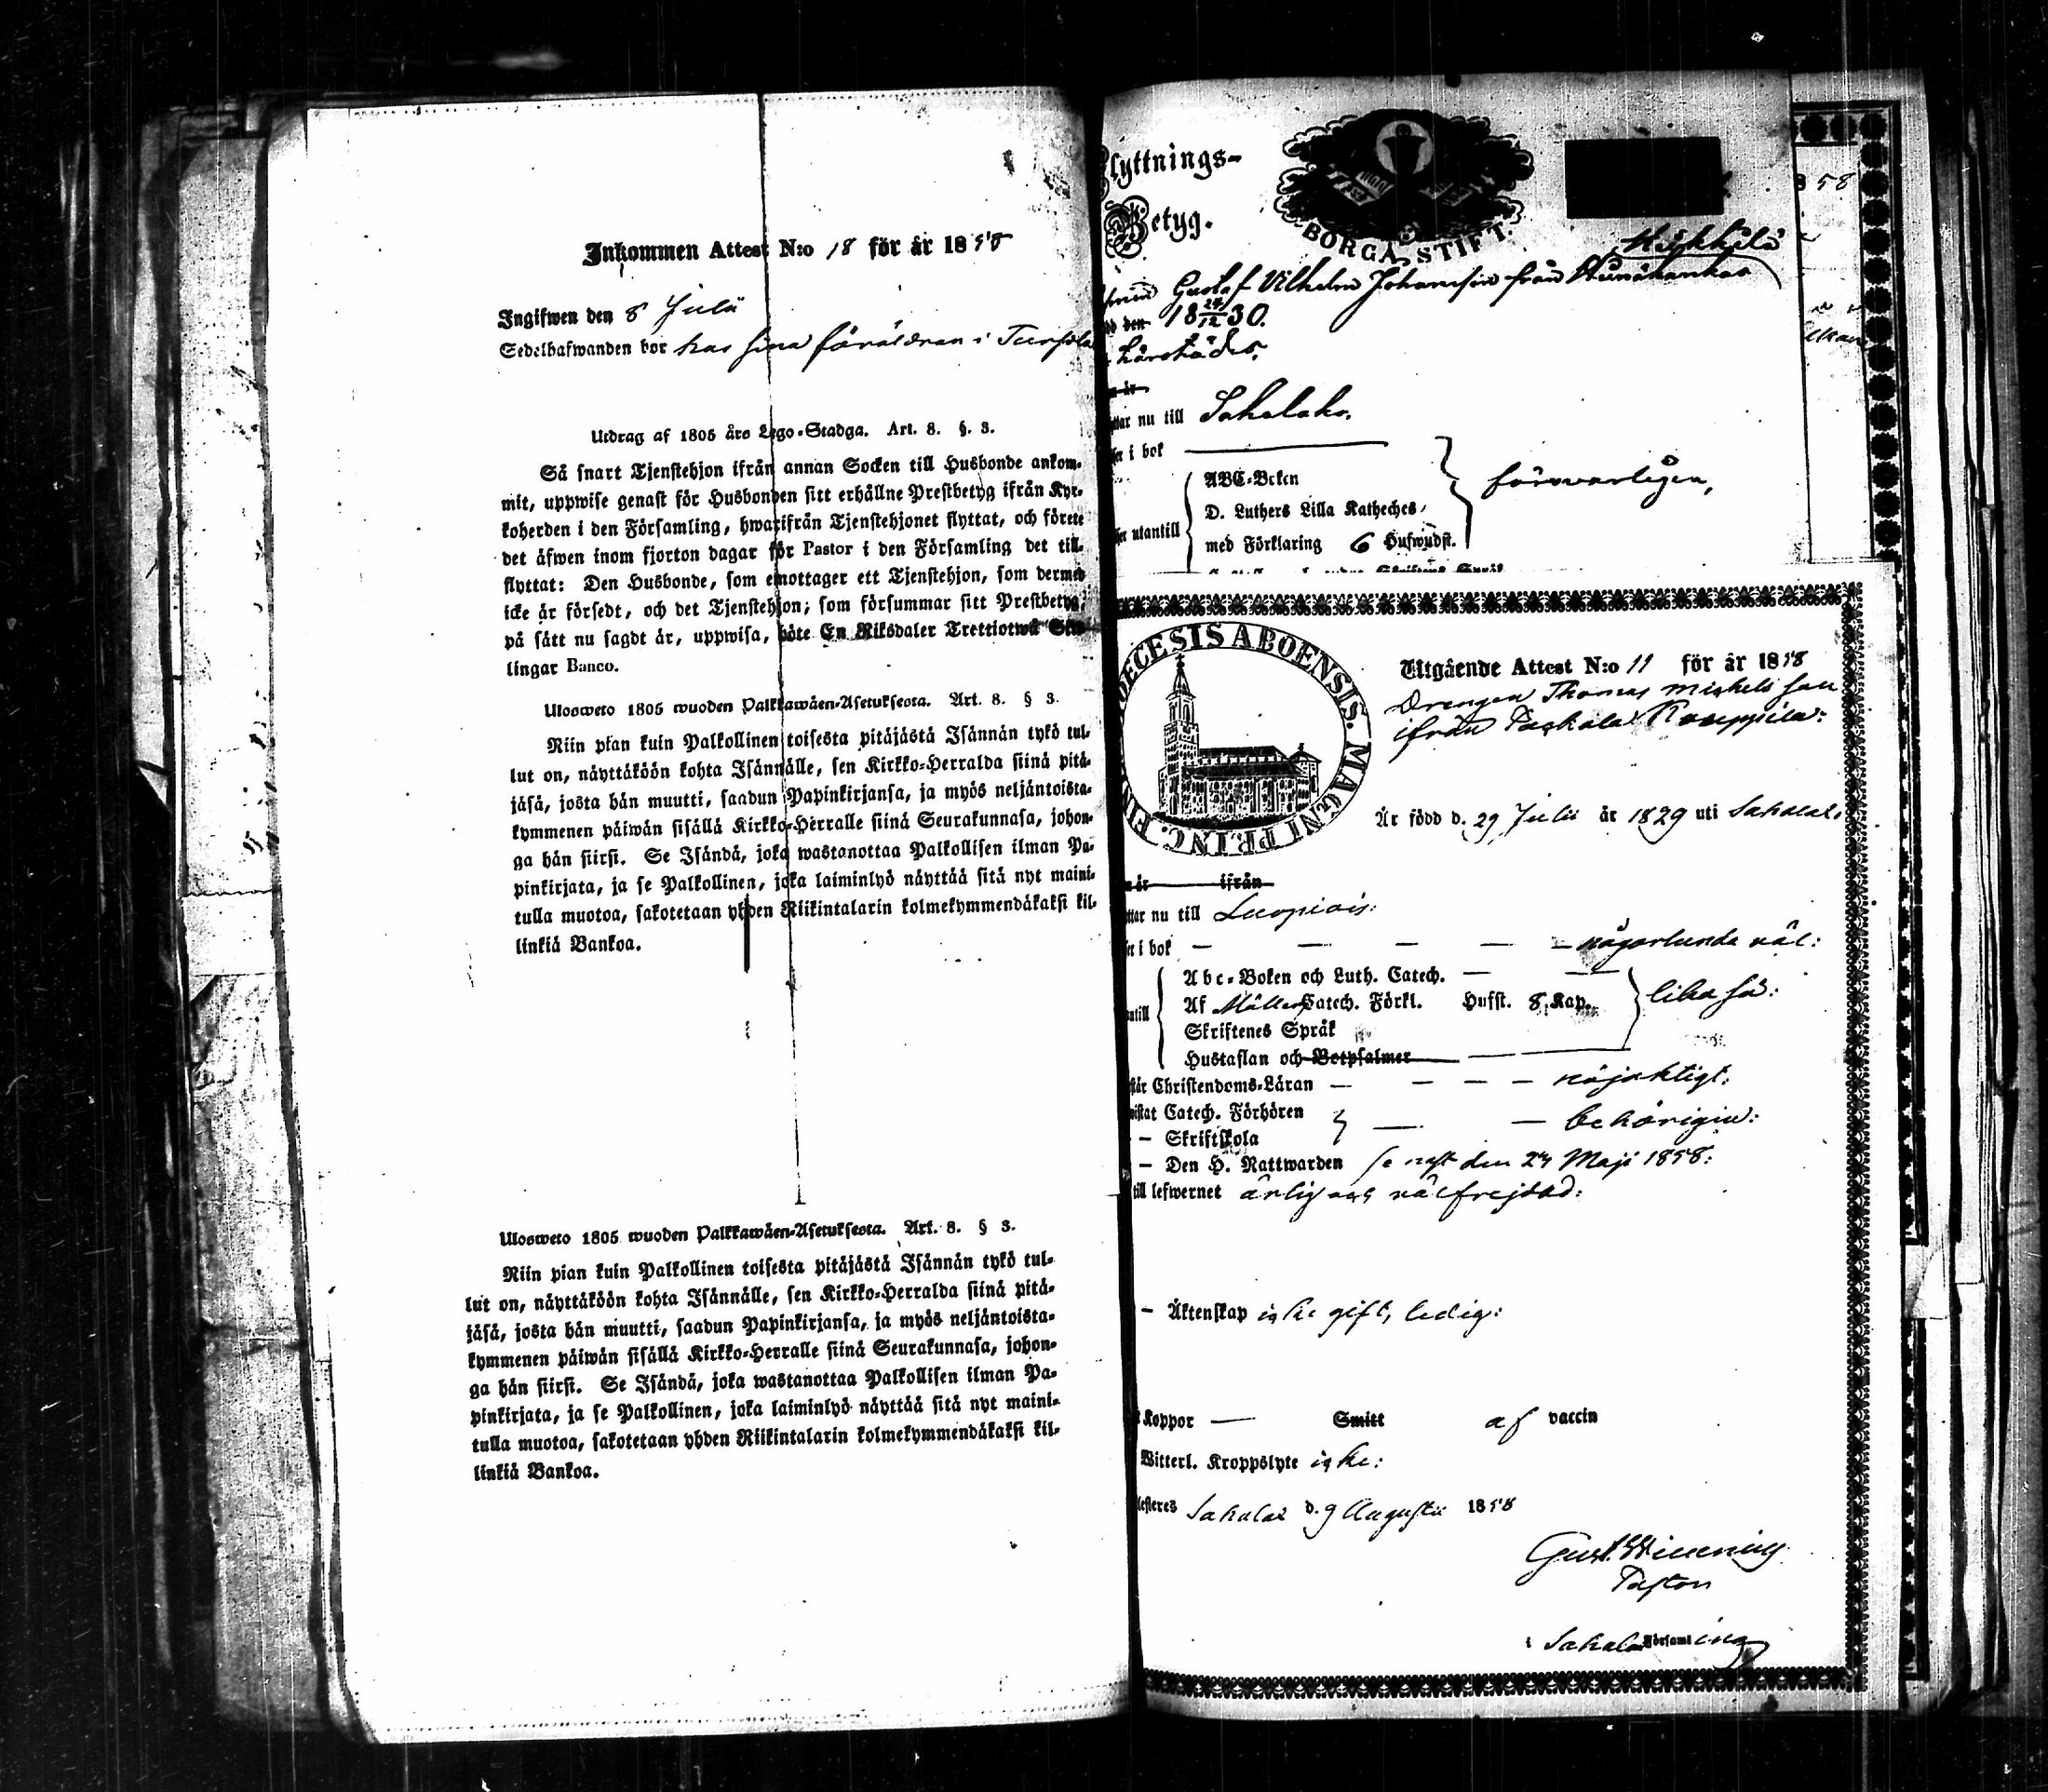 Inkommen Attest N:o 18 för år 1858
Ingifwen den 8 Julii
Sedelhafwanden bor hos sina föräldrar i Tursola
Utdrag af 1805 års Lego-Stadga. Art. 8. §. 3.
Så snart Tjenstehjon ifrån annan Socken till Husbonde ankom-
mit, uppwise genast för Husbonden sitt erhållne Prestbetyg ifrån Kyr-
koherden i den Församling, hwarifrån Tjenstehjonet flyttat, och förete
det äfwen inom fjorton dagar för Pastor i den Församling det till-
flyttat: Den Husbonde, som emottager ett Tjenstehjon, som dermed
icke är försedt, och det Tjenstehjon, som försummar sitt Prestbetyg,
på sätt nu sagdt är, uppwisa, böte En Riksdaler Trettiotwå Skil-
lingar Banco.
Ulosweto 1805 wuoden Palkkawäen-Asetuksesta. Art. 8. § 3.
Niin pian kuin Palkollinen toisesta pitäjästä Isännän tykö tul-
lut on, näyttäköön kohta Isännälle, sen Kirkko-Herralda siinä pitä-
jäsä, josta hän muutti, saadun Papinkirjansa, ja myös neljäntoista-
kymmenen päiwän sisällä Kirkko-Herralle siinä Seurakunnasa, johon-
ga hän siirsi. Se Isändä, joka wastanottaa Palkollisen ilman Pa-
pinkirjata, ja se Palkollinen, joka laiminlyö näyttää sitä nyt maini-
tulla muotoa, sakotetaan yhden Riikintalarin kolmekymmendäkaksi kil-
linkiä Bankoa.
Ulosweto 1805 wuoden Palkkawäen-Asetuksesta. Art. 8. § 3.
Niin pian kuin Palkollinen toisesta pitäjästä Isännän tykö tul-
lut on, näyttäköön kohta Isännälle, sen Kirkko-Herralda siinä pitä-
jäsä, josta hän muutti, saadun Papinkirjansa, ja myös neljäntoista-
kymmenen päiwän sisällä Kirkko-Herralle siinä Seurakunnasa, johon-
ga hän siirsi. Se Isändä, joka wastanottaa Palkollisen ilman Pa-
pinkirjata, ja se Palkollinen, joka laiminlyö näyttää sitä nyt maini-
tulla muotoa, sakotetaan yhden Riikintalarin kolmekymmendäkaksi kil-
linkiä Bankoa.
Flyttnings-
Betyg.
BORGÅ STIFT.
Gustaf Vilhelm Johansson från
den 18 24/12 30.
härstädes.
nu till Sahalaks.
i bok
ABC-Boken
D. Luthers Lilla Katheches,
utantill
med Förklaring 6 Hufwudst.
försvarligen,
58
DIOECESIS ABOENSIS. MAGNI PR.INC. FIN
Utgående Attest N:o 11 för år 1858
Drengen Thomas Mickelsson
ifrån Taskala Kauppila:
Är född d. 29 Julii år 1829 uti Sahalax,
år ifrån
nu till Luopiois:
i bok — — — — — någorlunda väl:
Abc-Boken och Luth. Catech. — —
Af Möllers Catech. Förkl. Hufst. 8 Kap. lika så:
Skriftenes Språk
Hustaflan och Botpsalmer
Christendoms-Läran — — — — nöjaktigt:
Catech. Förhören
— — behörigen:
– Skriftskola
– Den H. Nattwarden senast den 24 Maji 1858:
till lefwernet ärlig och välfrejdad:
– Äktenskap icke gift, ledig:
Koppor — Smitt af vaccin
Witterl. Kroppslyte icke:
Sahalax d. 9 Augusti 1858
Pastor
i Sahalax Församling